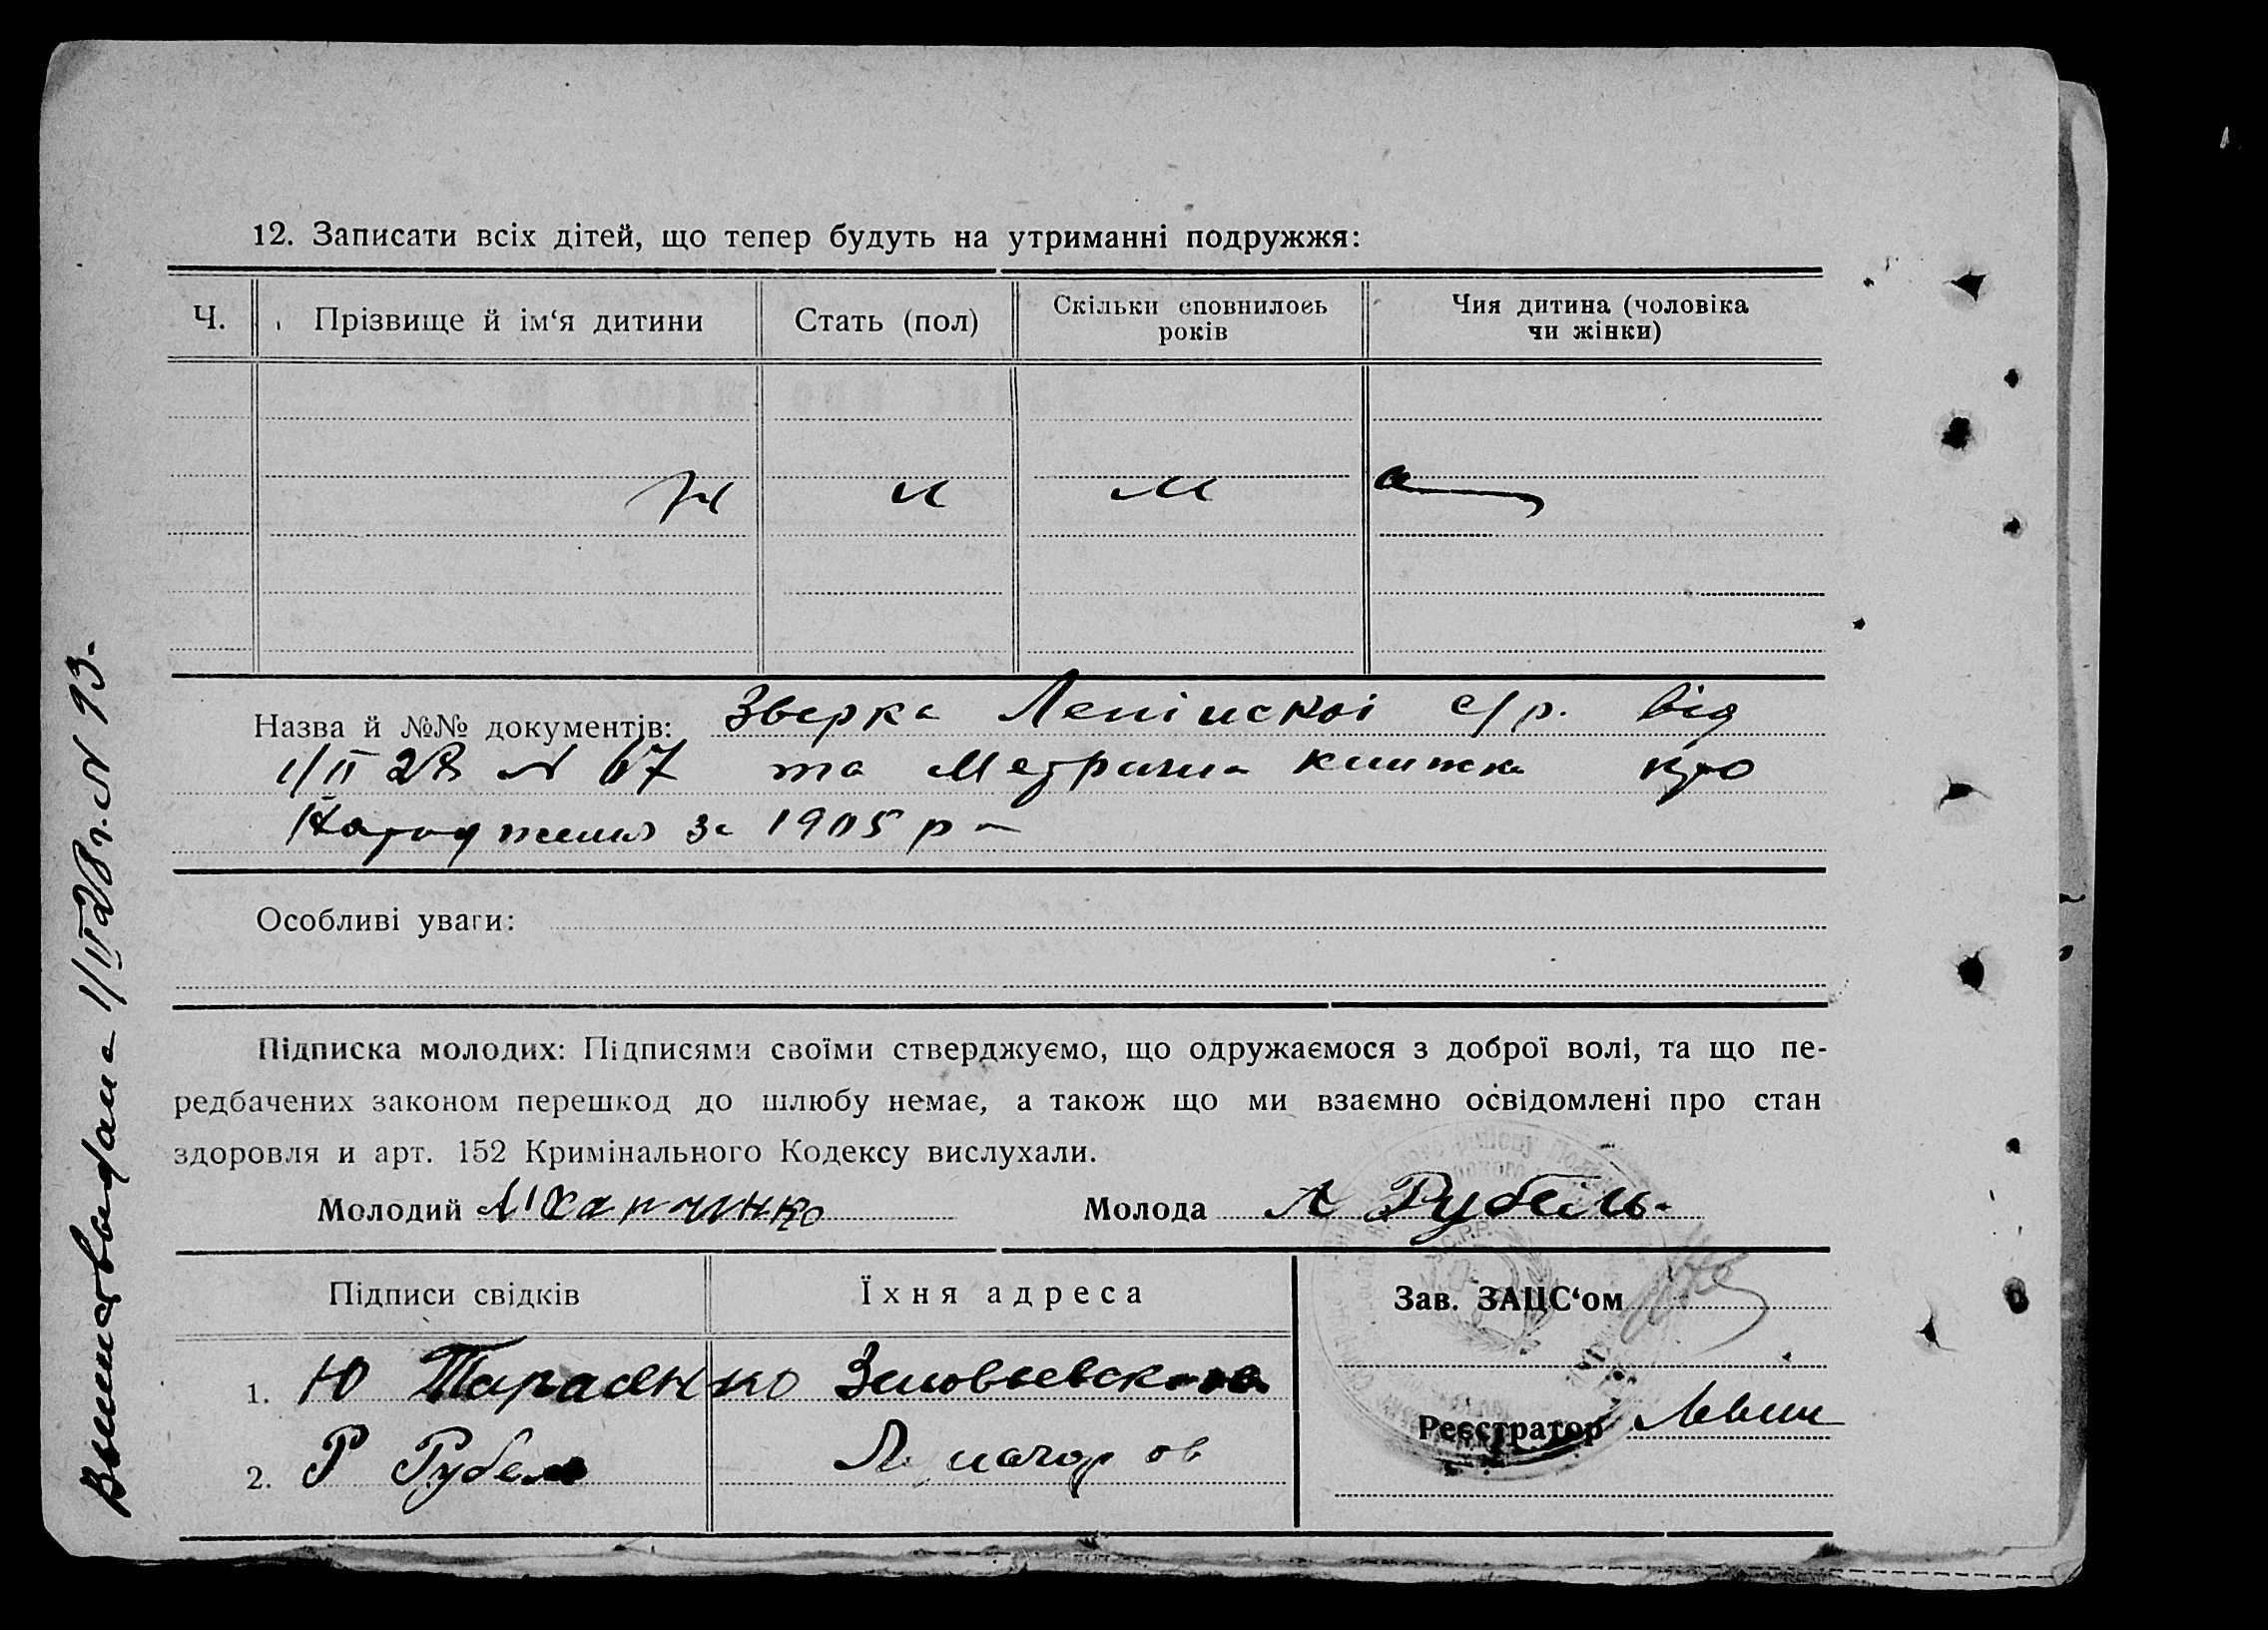 12. Записати всіх дітей, що тепер будуть на утриманні подружжя:
Ч. Прізвище й ім‘я дитини Стать (пол) Скільки сповнилось років Чия дитина (чоловіка чи жінки)
Назва й №№ документів: Зверка Ленінскоі с/р. від
1/II 28 N 67 та Метрична книжка про
Народження за 1905 р
Особливі уваги:
Підписка молодих: Підписями своїми стверджуємо, що одружаємося з доброї волі, та що пе-
редбачених законом перешкод до шлюбу немає, а також що ми взаємно освідомлені про стан
здоровля и арт. 152 Кримінального Кодексу вислухали.
Молодий Молода Рубель
Підписи свідків Їхня адреса Зав. ЗАЦС‘ом
1. Ю Тарасенко
Реєстратор Левин
2. Р Рубель
N 93